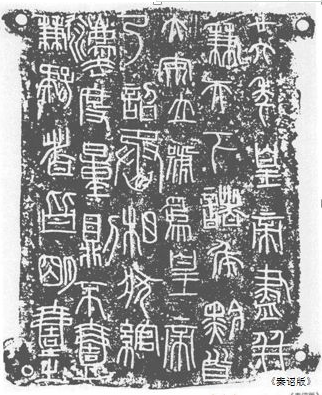 廿六年皇帝盡并
兼天下諸侯黔首
大安立號為皇帝
乃詔丞相狀綰
灋度量則不壹
歉疑者皆明壹之
《秦诏版》